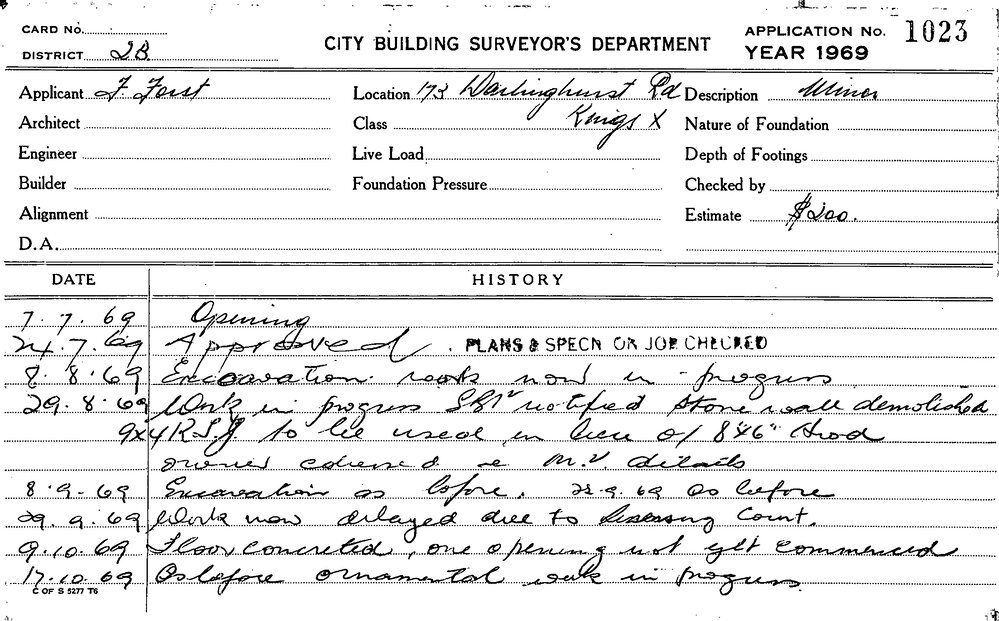 CARD No.
DISTRICT 2B
CITY BUILDING SURVEYOR'S DEPARTMENT
APPLICATION No. 1023
YEAR 1969
Applicant F. Forst
Location 173 Darlinghurst Rd
Description Minor
Architect
Class Kings X
Nature of Foundation
Engineer
Live Load
Depth of Footings
Builder
Foundation Pressure
Checked by
Alignment
Estimate $200.
D.A.
DATE HISTORY
7.7.69 Opening
24.7.69 Approved . PLANS & SPECN ON JOB CHECKED
8.8.69 Excavation work now in progress
29.8.69 Work in progress notified stone wall demolished
9x4 R.S.J. to be used in lieu of 8"x6"
owner details
8.9.69 Excavation as before. 22.9.69 as before
29.9.69 Work now delayed due to Licensing Court.
9.10.69 Floor concreted, one opening not yet commenced
17.10.69 As before ornamental work in progress.
C OF S 5277 T6